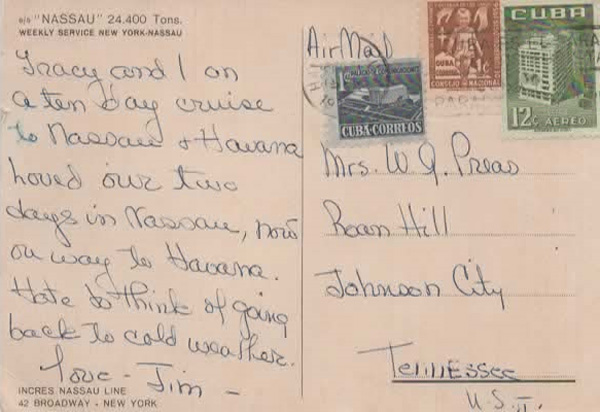 s/s "NASSAU" 24.400 Tons.
WEEKLY SERVICE NEW YORK-NASSAU
Tracy and I on
a ten day cruise
to Nassau & Havana
Loved our two
days in Nassau, now
on way to Havana.
Hate to think of going
back to cold weather.
Love - Jim -
INCRES NASSAU LINE
42 BROADWAY - NEW YORK
Air Mail
CUBA
CONSEJO NACIONAL
1c
CUBA-CORREOS
CUBA
12c AEREO
Mrs. W. J. Preas
Roan Hill
Johnson City
Tennessee